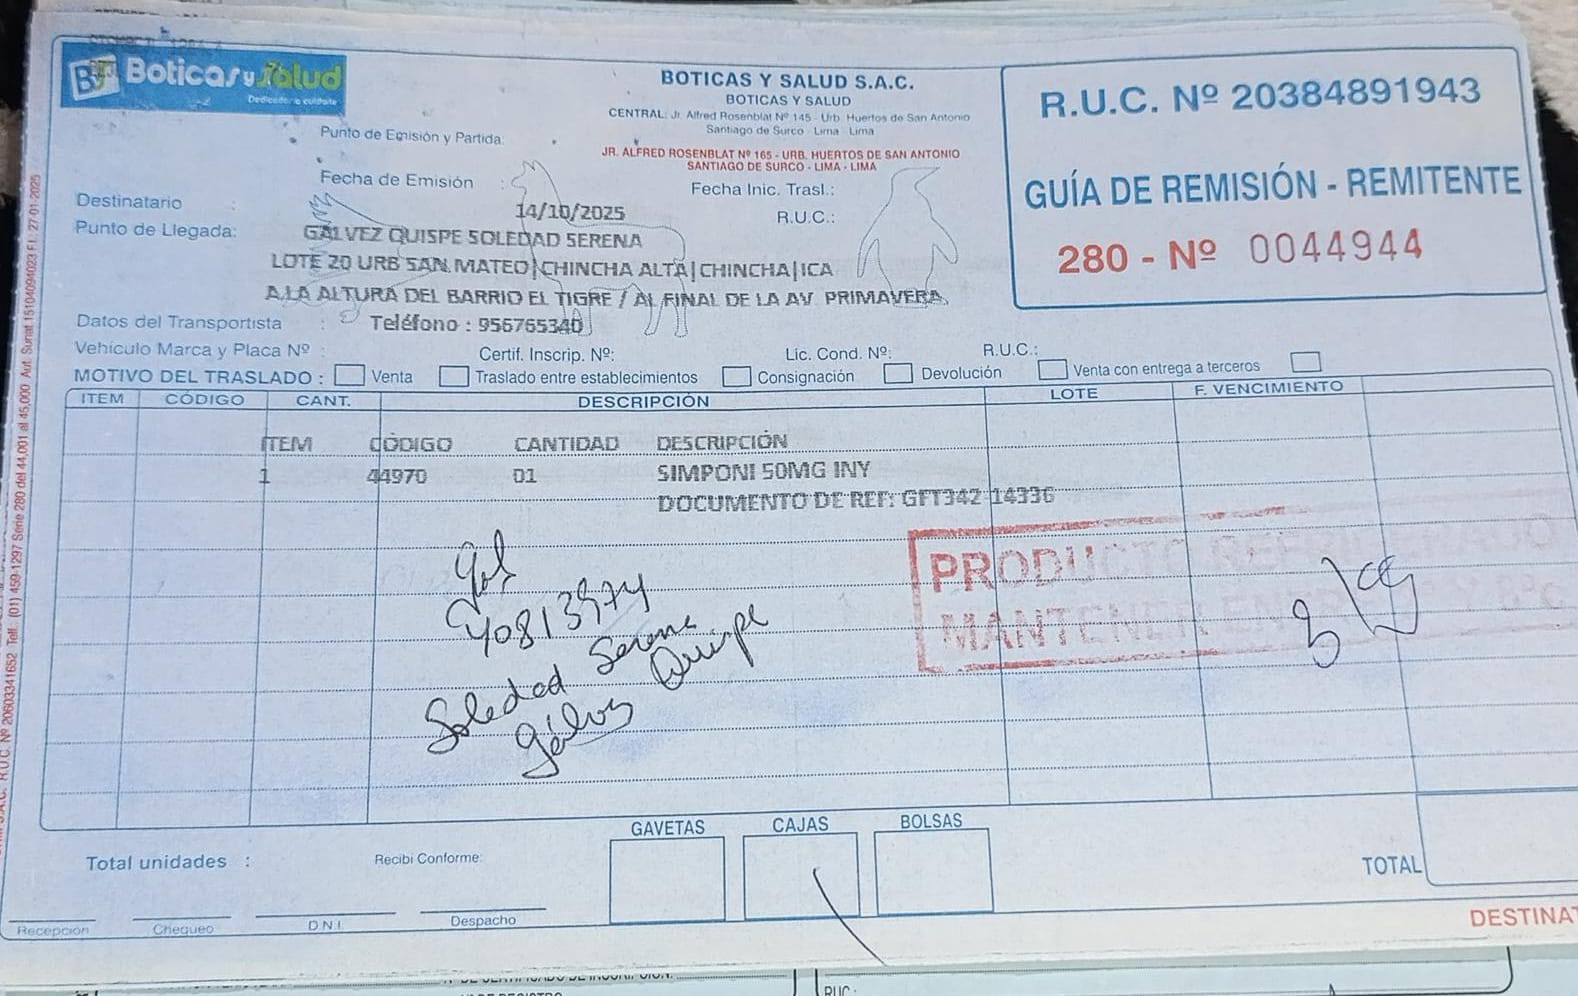 Boticas y Salud
Dedicados a cuidarte
BOTICAS Y SALUD S.A.C.
BOTICAS Y SALUD
CENTRAL: Jr. Alfred Rosenblat Nº 145 - Urb. Huertos de San Antonio
Santiago de Surco - Lima - Lima
Punto de Emisión y Partida:
JR. ALFRED ROSENBLAT Nº 165 - URB. HUERTOS DE SAN ANTONIO
SANTIAGO DE SURCO - LIMA - LIMA
R.U.C. Nº 20384891943
GUÍA DE REMISIÓN - REMITENTE
280 - Nº 0044944
Fecha de Emisión :
Fecha Inic. Trasl.:
14/10/2025
Destinatario :
R.U.C.:
Punto de Llegada:
GALVEZ QUISPE SOLEDAD SERENA
LOTE 20 URB SAN MATEO|CHINCHA ALTA|CHINCHA|ICA
A LA ALTURA DEL BARRIO EL TIGRE / AL FINAL DE LA AV. PRIMAVERA,
Datos del Transportista :
Teléfono : 956765340
Vehículo Marca y Placa Nº :
Certif. Inscrip. Nº:
Lic. Cond. Nº:
R.U.C.:
MOTIVO DEL TRASLADO : Venta Traslado entre establecimientos Consignación Devolución Venta con entrega a terceros
ITEM CÓDIGO CANT. DESCRIPCIÓN LOTE F. VENCIMIENTO
ITEM CÓDIGO CANTIDAD DESCRIPCIÓN
1 44970 01 SIMPONI 50MG INY
DOCUMENTO DE REF: GFT342 14336
PRODUCTO REFRIGERADO
MANTENER ENTRE 2 Y 8ºc
Soledad Serena
Gálvez Quispe
GAVETAS CAJAS BOLSAS
Total unidades :
Recibi Conforme:
TOTAL
Recepción Chequeo D.N.I. Despacho
DESTINAT
R.U.C. Nº 20603341652 Telf.: (01) 459-1297 Serie 280 del 44,001 al 45,000 Aut. Sunat 15104094023 F.I. 27-01-2025
RUC: